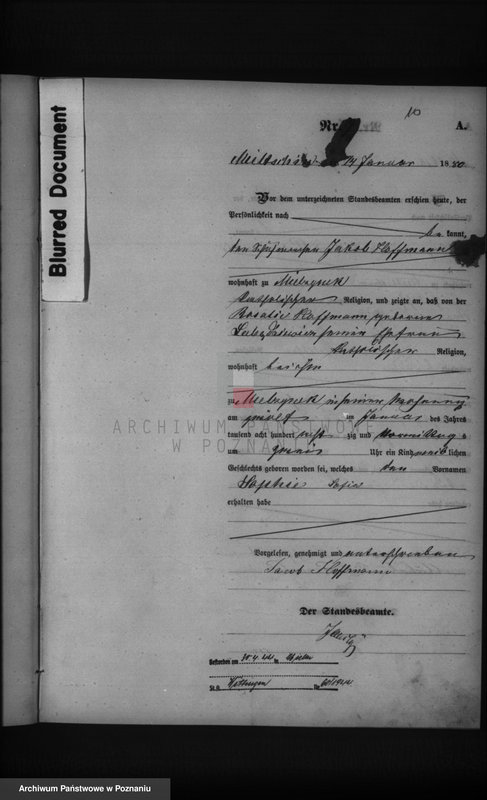 Blurred Document
10
Nr. A.
am 14 Januar 1880
Vor dem unterzeichneten Standesbeamten erschien heute, der
Persönlichkeit nach
be kannt,
Jakob Hoffmann
wohnhaft zu Mielzynek
katholischer Religion, und zeigte an, daß von der
Rosalie Hoffmann geborenen
seiner Ehefrau
katholischer Religion,
wohnhaft bei ihm
zu Mielzynek in seiner Wohnung
am zwölf ten Januar des Jahres
tausend acht hundert acht zig und Vormittags
um Uhr ein Kind weib lichen
Geschlechts geboren worden sei, welches den Vornamen
Sophie Sofia
erhalten habe
Vorgelesen, genehmigt und unterschrieben
Jacob Hoffmann
Der Standesbeamte.
Gestorben am in
St. A. Nr.
ARCHIWUM PAŃSTWOWE
W POZNANIU
Archiwum Państwowe w Poznaniu